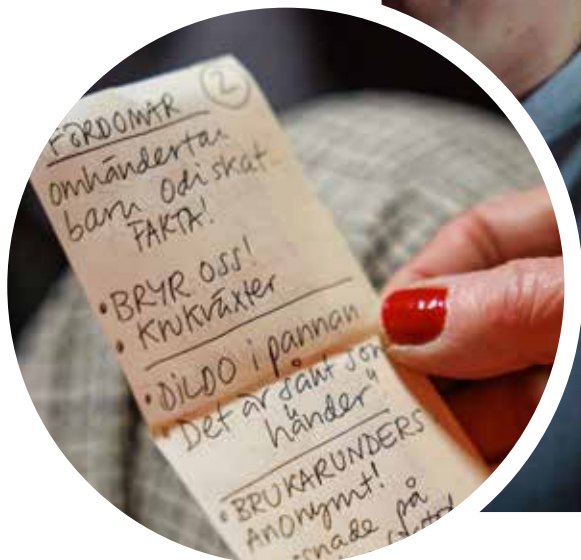 FÖRDOMAR 2
omhändertar
barn Odiskat
FAKTA!
• BRYR OSS!
• Krukväxter
• DILDO i pannan
"Det är sånt som
händer"
• BRUKARUNDERS
Anonymt!
på